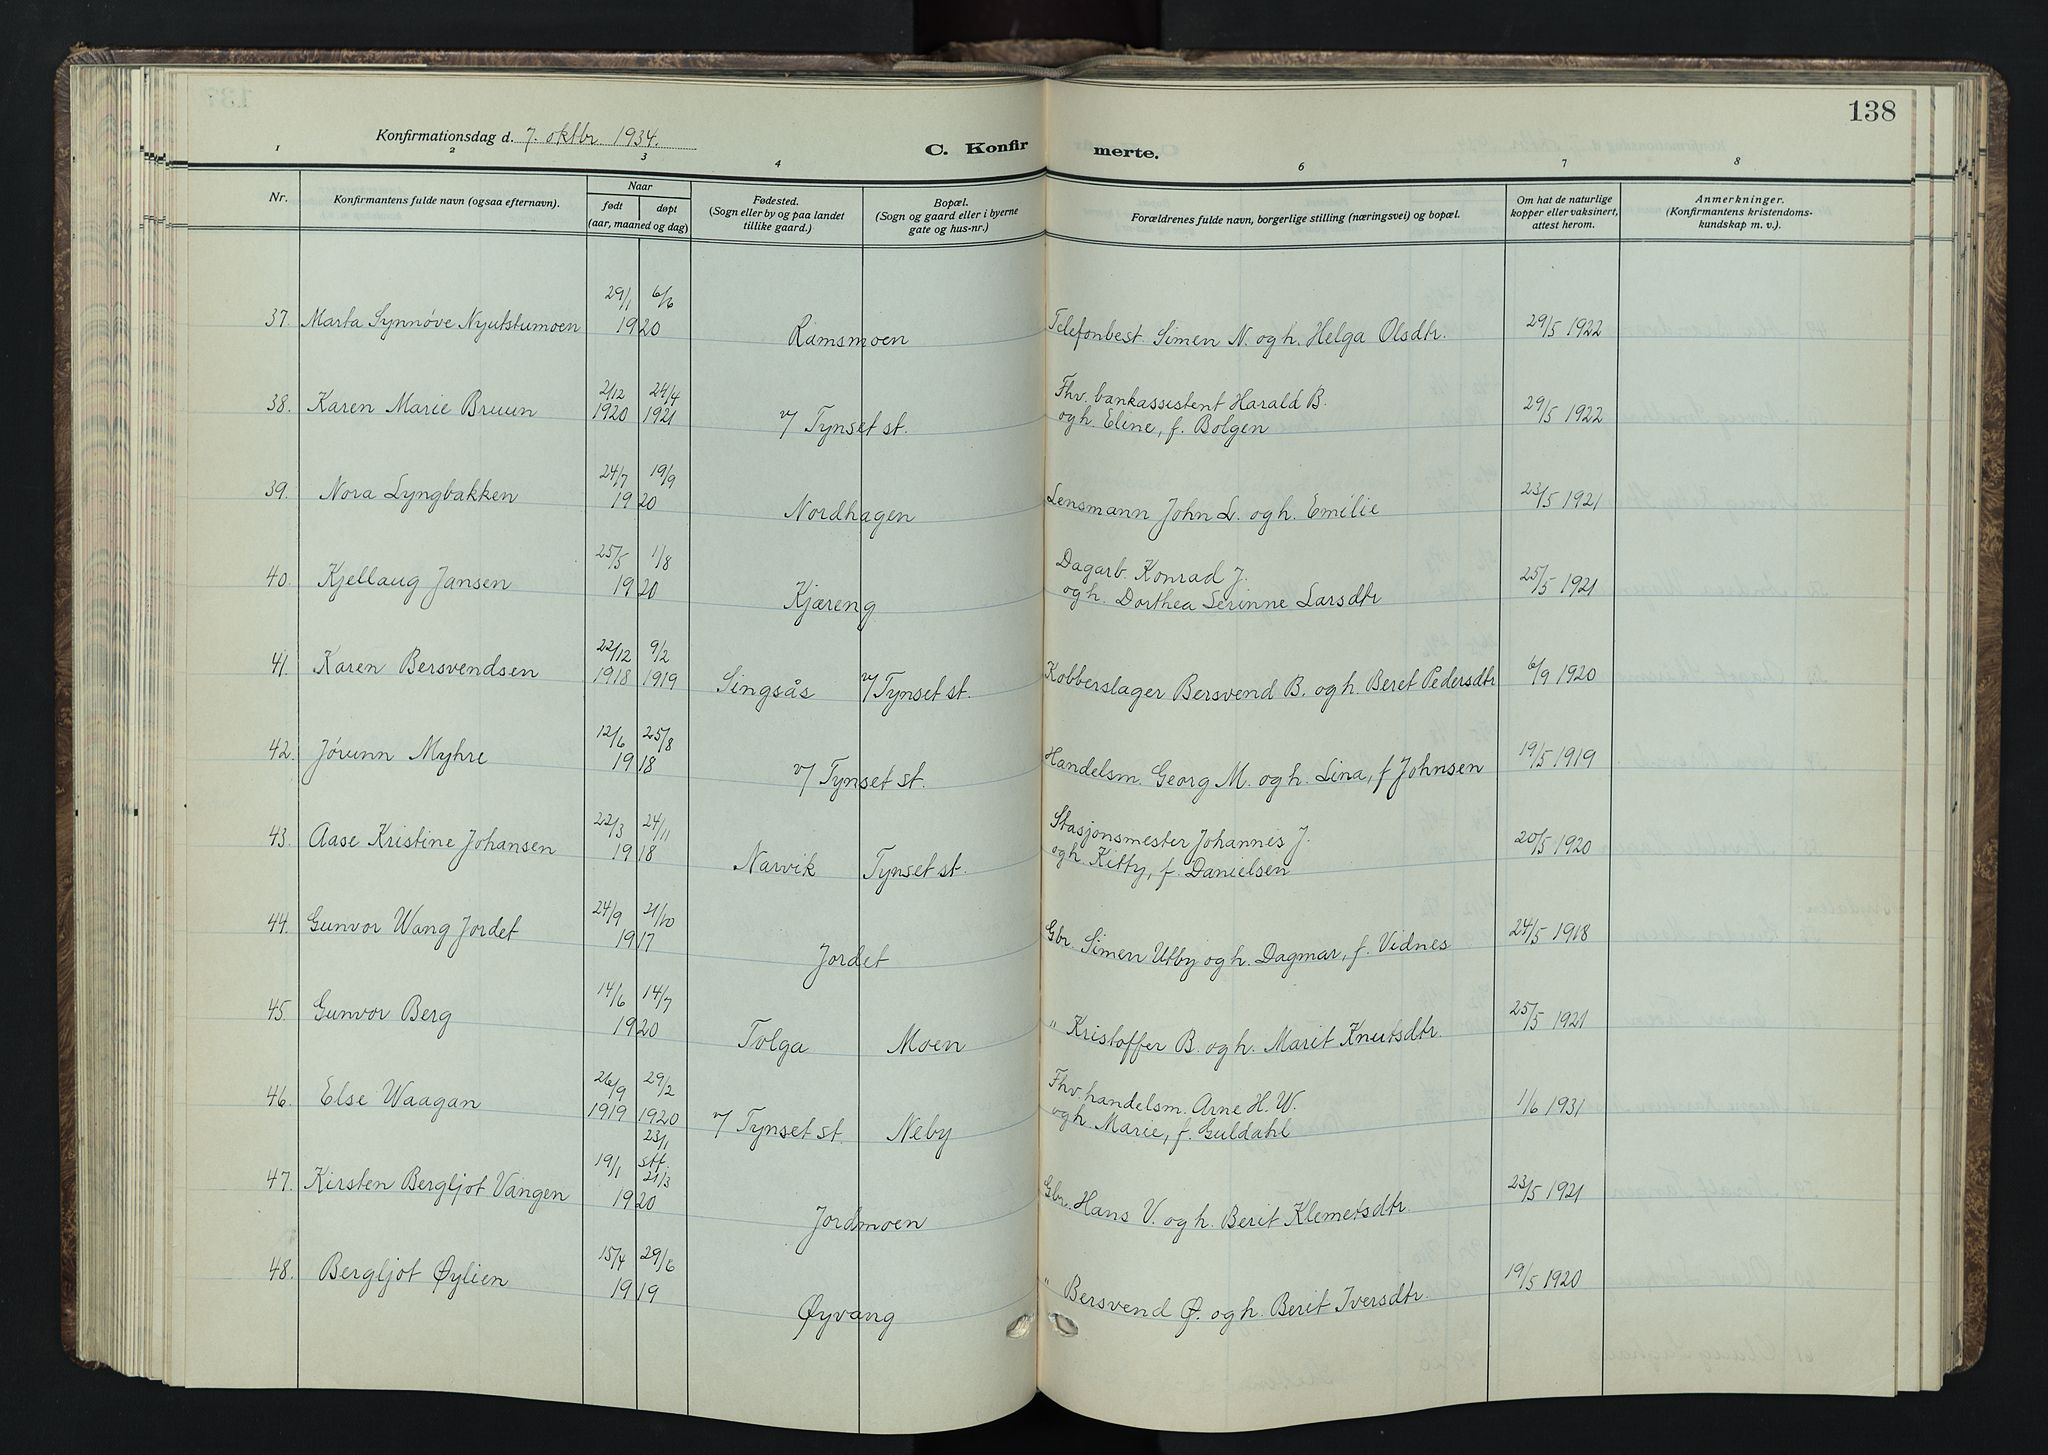 138
Konfirmationsdag d. 7. oktbr. 1934.
C. Konfirmerte.
1 2 3 4 5 6 7 8
Nr. Konfirmantens fulde navn (ogsaa efternavn). Naar født døpt (aar, maaned og dag) Fødested. (Sogn eller by og paa landet tillike gaard.) Bopæl. (Sogn og gaard eller i byerne gate og hus-nr.) Forældrenes fulde navn, borgerlige stilling (næringsvei) og bopæl. Om hat de naturlige kopper eller vaksinert, attest herom. Anmerkninger. (Konfirmantens kristendoms-kundskap m. v.).
37. Marta Synnøve Nyutstumoen 29/1 6/6 1920 Ramsmoen Telefonbest. Simen N. og h. Helga Olsdtr. 29/5 1922
38. Karen Marie Bruun 2/12 1920 24/4 1921 v/ Tynset st. Fhv. bankassistent Harald B.
og h. Eline, f. Bolgen 29/5 1922
39. Nora Lyngbakken 24/7 19/9 1920 Nordhagen Lensmann John L. og h. Emilie 23/5 1921
40. Kjellaug Jansen 25/5 1/8 1920 Kjæreng Dagarb. Konrad J.
og h. Dorthea Serinne Larsdtr 25/5 1921
41. Karen Bersvendsen 22/12 1918 9/2 1919 Singsås v/ Tynset st. Kobberslager Bersvend B. og h. Beret Pedersdtr 6/9 1920
42. Jórunn Myhre 12/6 25/8 1918 v/ Tynset st. Handelsm. Georg M. og h. Lina, f Johnsen 19/5 1919
43. Aase Kristine Johansen 22/3 24/11 1918 Narvik Tynset st. Stasjonsmester Johannes J.
og h. Kitty, f. Danielsen 20/5 1920
44. Gunvor Wang Jordet 24/9 21/10 1917 Jordet Gbr. Simen Utby og h. Dagmar, f. Vidnes 24/5 1918
45. Gunvor Berg 14/6 14/7 1920 Tolga Moen " Kristoffer B. og h. Marit Knutsdtr. 25/5 1921
46. Else Waagan 26/9 1919 29/2 1920 v/ Tynset st. Neby Fhv. handelsm. Arne H. W.
og h. Marie, f. Guldahl 1/6 1931
47. Kirsten Bergljot Vangen 19/1 23/1 stf. 21/3 1920 Jordmoen Gbr. Hans V. og h. Berit Klemetsdtr. 23/5 1921
48. Bergljot Øylien 15/4 29/6 1919 Øyvang " Bersvend Ø. og h. Berit Iversdtr. 19/5 1920